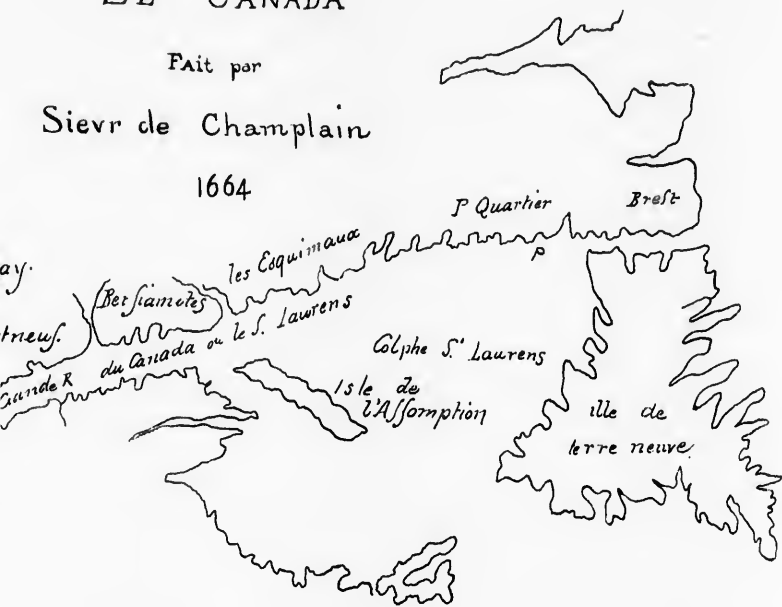 CANADA
FAit par
Sievr de Champlain
1664
P Quartier
Brest
les Esquimaux
ay.
Bersiametes
P
tneuf.
Grande R du Canada ou le S. Lawrens
Golphe S.t Laurens
Isle de
l'Assomption
ille de
terre neuve